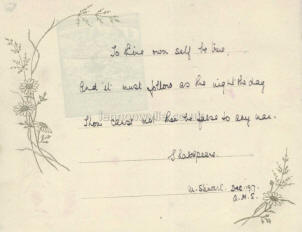 To thine own self be true,
And it must follow as the night the day
Thou canst not then be false to any man.
Shakespeare.
Dec. 1917.